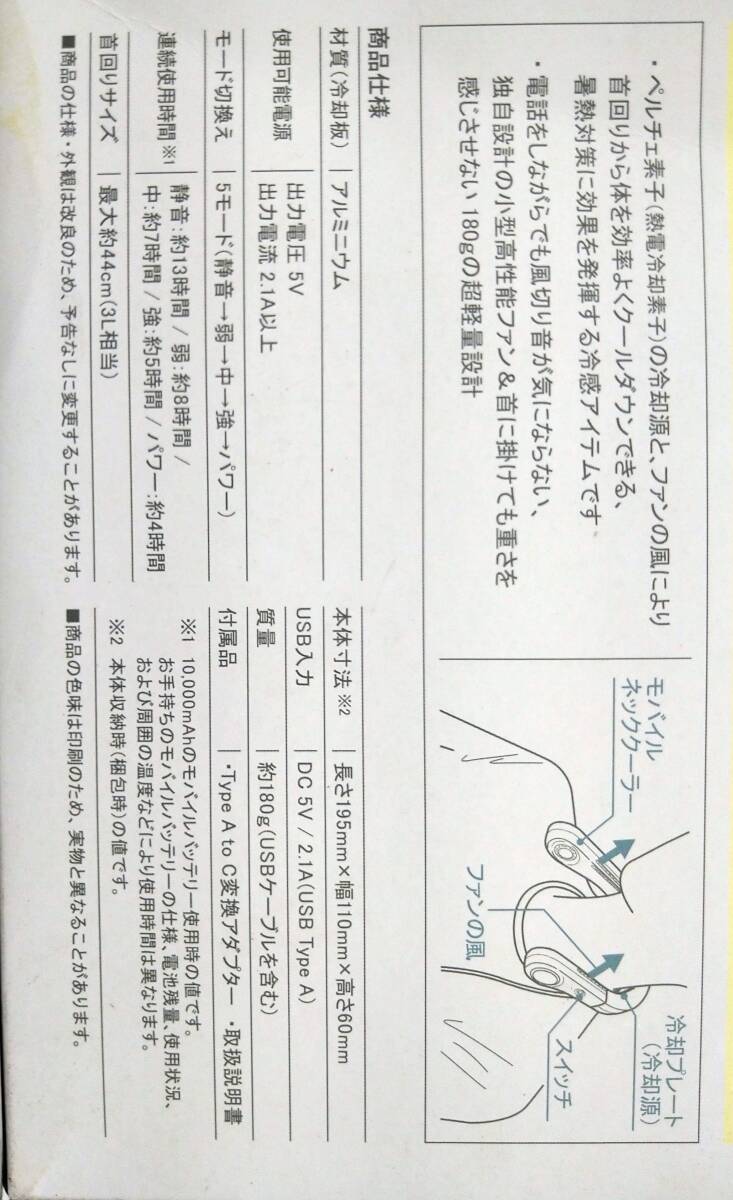 ・ペルチェ素子(熱電冷却素子)の冷却源と、ファンの風により
首回りから体を効率よくクールダウンできる、
暑熱対策に効果を発揮する冷感アイテムです
・電話をしながらでも風切り音が気にならない、
独自設計の小型高性能ファン&首に掛けても重さを
感じさせない180gの超軽量設計
モバイル
ネッククーラー
ファンの風
冷却プレート
(冷却源)
スイッチ
商品仕様
材質(冷却板) アルミニウム
使用可能電源 出力電圧 5V
出力電流 2.1A以上
モード切換え 5モード(静音→弱→中→強→パワー)
連続使用時間※1 静音:約13時間 / 弱:約8時間 /
中:約7時間 / 強:約5時間 / パワー:約4時間
首回りサイズ 最大約44cm(3L相当)
■商品の仕様・外観は改良のため、予告なしに変更することがあります。
本体寸法※2 長さ195mm×幅110mm×高さ60mm
USB入力 DC 5V / 2.1A(USB Type A)
質量 約180g(USBケーブルを含む)
付属品 ・Type A to C変換アダプター ・取扱説明書
※1 10,000mAhのモバイルバッテリー使用時の値です。
お手持ちのモバイルバッテリーの仕様、電池残量、使用状況、
および周囲の温度などにより使用時間は異なります。
※2 本体収納時(梱包時)の値です。
■商品の色味は印刷のため、実物と異なることがあります。